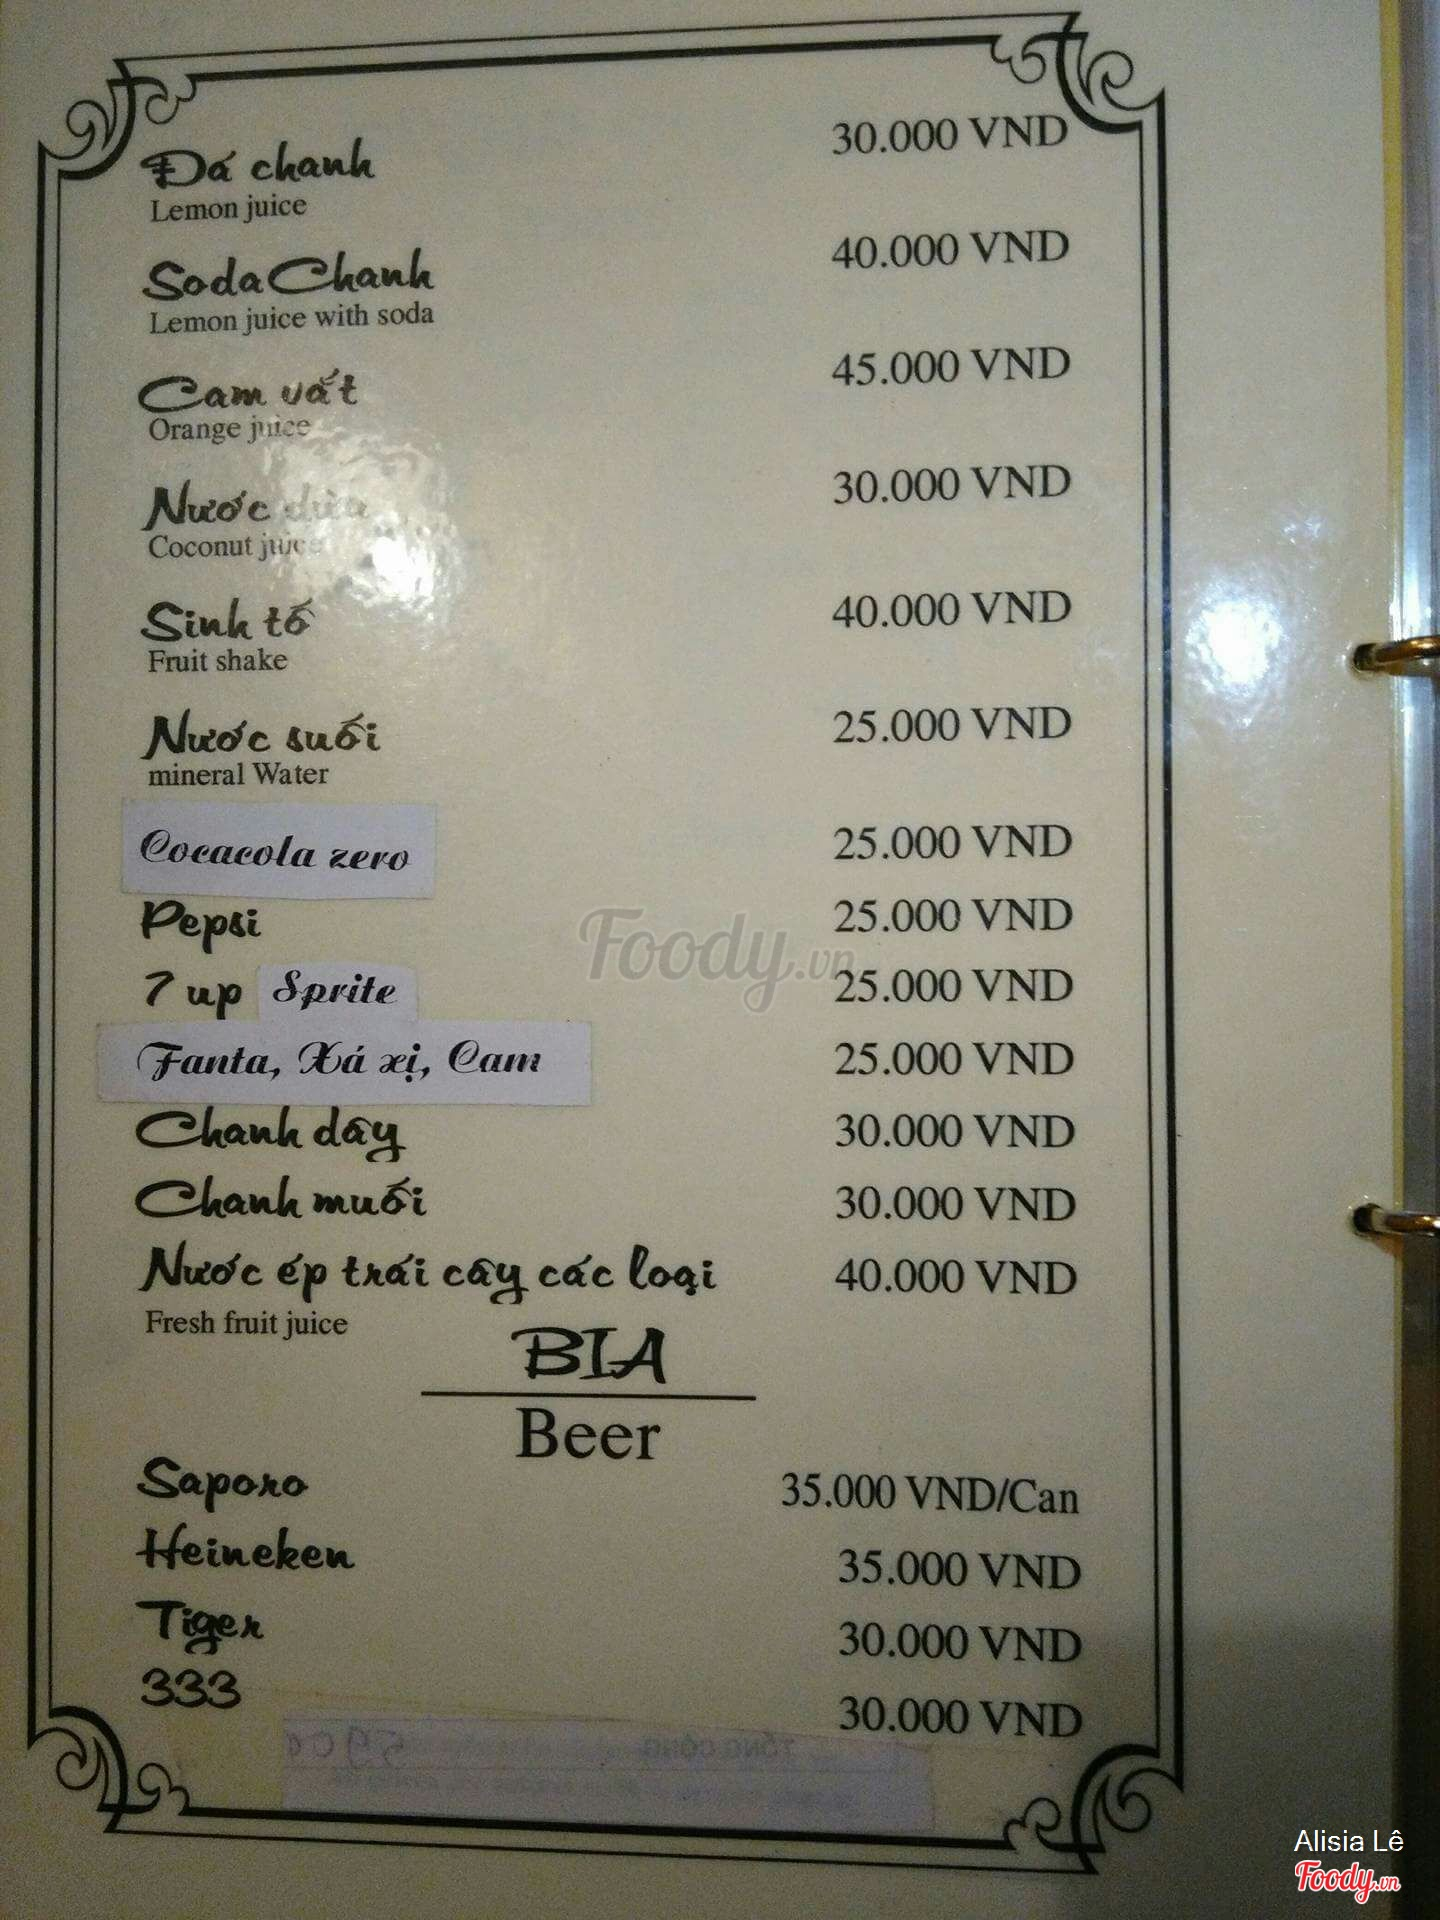 Đá chanh 30.000 VND
Lemon juice
Soda Chanh 40.000 VND
Lemon juice with soda
Cam vắt 45.000 VND
Orange juice
Nước dừa 30.000 VND
Coconut juice
Sinh tố 40.000 VND
Fruit shake
Nước suối 25.000 VND
mineral Water
Cocacola zero 25.000 VND
Pepsi 25.000 VND
7 up Sprite 25.000 VND
Fanta, Xá xị, Cam 25.000 VND
Chanh dây 30.000 VND
Chanh muối 30.000 VND
Nước ép trái cây các loại 40.000 VND
Fresh fruit juice
BIA
Beer
Saporo 35.000 VND/Can
Heineken 35.000 VND
Tiger 30.000 VND
333 30.000 VND
TỔNG CỘNG
Foody.vn
Alisia Lê
Foody.vn